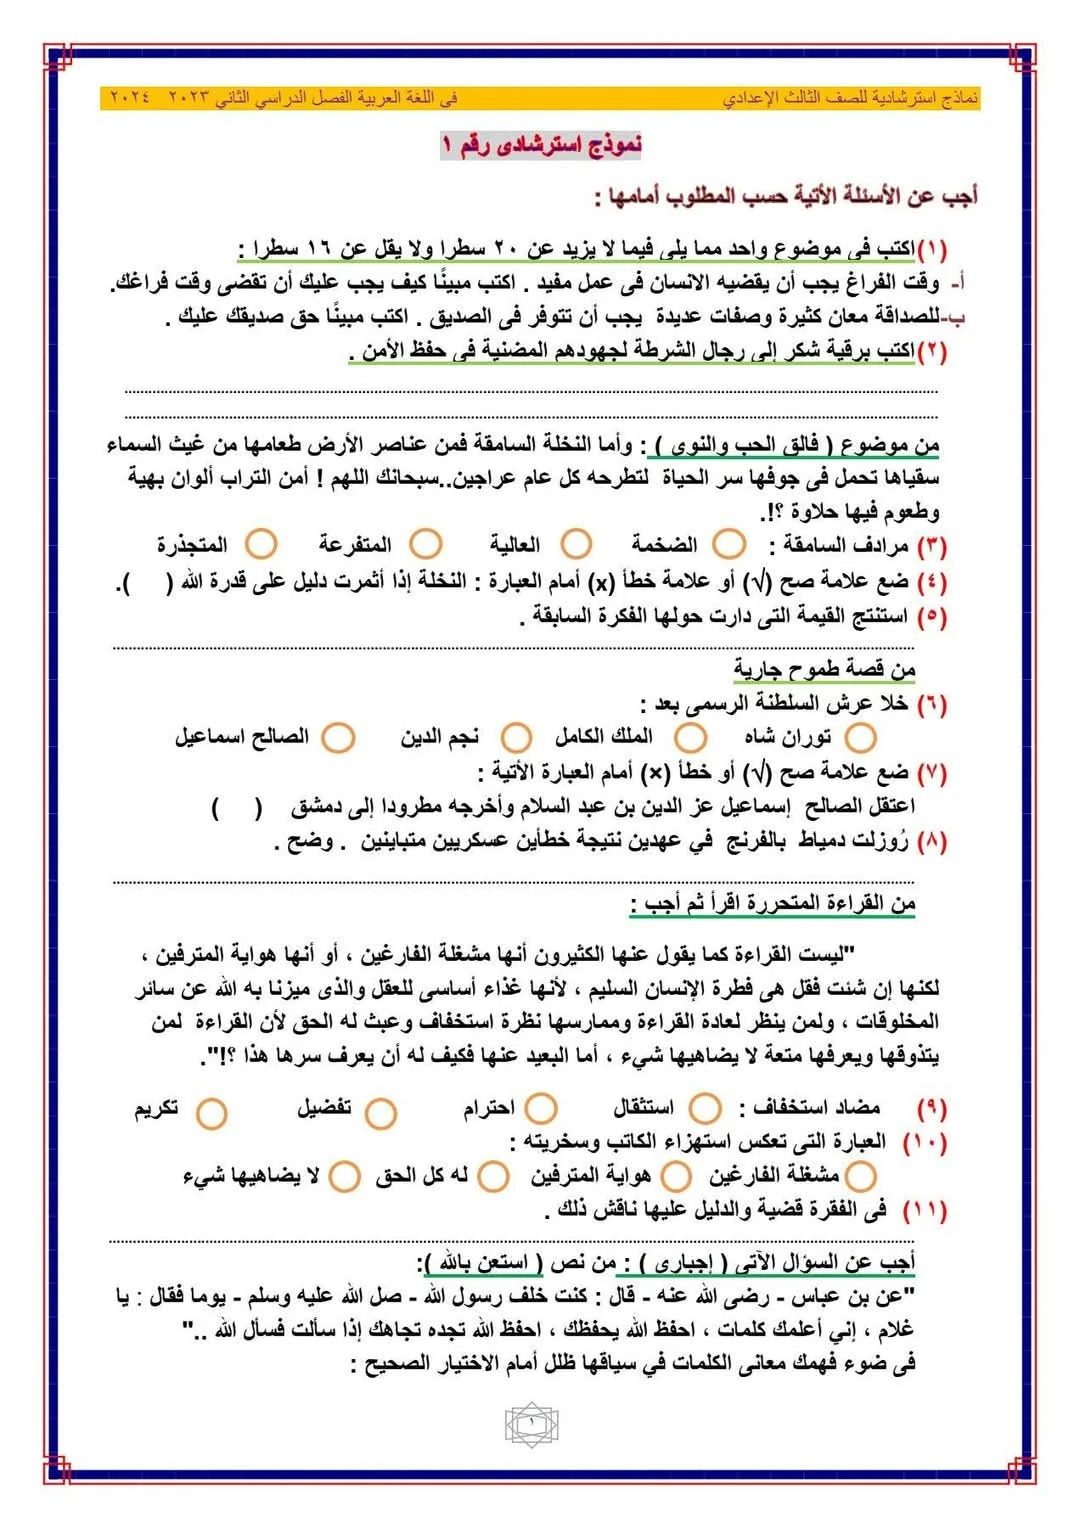 نماذج استرشادية للصف الثالث الإعدادي فى اللغة العربية الفصل الدراسي الثاني ٢٠٢٣ ٢٠٢٤
نموذج استرشادى رقم ١
أجب عن الأسئلة الأتية حسب المطلوب أمامها :
(١) اكتب فى موضوع واحد مما يلى فيما لا يزيد عن ٢٠ سطرا ولا يقل عن ١٦ سطرا :
أ- وقت الفراغ يجب أن يقضيه الانسان فى عمل مفيد . اكتب مبينًا كيف يجب عليك أن تقضى وقت فراغك.
ب-للصداقة معان كثيرة وصفات عديدة يجب أن تتوفر فى الصديق . اكتب مبينًا حق صديقك عليك .
(٢) اكتب برقية شكر إلى رجال الشرطة لجهودهم المضنية فى حفظ الأمن .
من موضوع ( فالق الحب والنوى ) : وأما النخلة السامقة فمن عناصر الأرض طعامها من غيث السماء
سقياها تحمل فى جوفها سر الحياة لتطرحه كل عام عراجين..سبحانك اللهم ! أمن التراب ألوان بهية
وطعوم فيها حلاوة ؟!.
(٣) مرادف السامقة : الضخمة العالية المتفرعة المتجذرة
(٤) ضع علامة صح (√) أو علامة خطأ (x) أمام العبارة : النخلة إذا أثمرت دليل على قدرة الله ( ).
(٥) استنتج القيمة التى دارت حولها الفكرة السابقة .
من قصة طموح جارية
(٦) خلا عرش السلطنة الرسمى بعد :
توران شاه الملك الكامل نجم الدين الصالح اسماعيل
(٧) ضع علامة صح (√) أو خطأ (×) أمام العبارة الأتية :
اعتقل الصالح إسماعيل عز الدين بن عبد السلام وأخرجه مطرودا إلى دمشق ( )
(٨) رُوزلت دمياط بالفرنج في عهدين نتيجة خطأين عسكريين متباينين . وضح .
من القراءة المتحررة اقرأ ثم أجب :
"ليست القراءة كما يقول عنها الكثيرون أنها مشغلة الفارغين ، أو أنها هواية المترفين ،
لكنها إن شئت فقل هى فطرة الإنسان السليم ، لأنها غذاء أساسى للعقل والذى ميزنا به الله عن سائر
المخلوقات ، ولمن ينظر لعادة القراءة وممارسها نظرة استخفاف وعبث له الحق لأن القراءة لمن
يتذوقها ويعرفها متعة لا يضاهيها شيء ، أما البعيد عنها فكيف له أن يعرف سرها هذا ؟!".
(٩) مضاد استخفاف : استثقال احترام تفضيل تكريم
(١٠) العبارة التى تعكس استهزاء الكاتب وسخريته :
مشغلة الفارغين هواية المترفين له كل الحق لا يضاهيها شيء
(١١) فى الفقرة قضية والدليل عليها ناقش ذلك .
أجب عن السؤال الآتى ( إجبارى ) : من نص ( استعن بالله ):
"عن بن عباس - رضى الله عنه - قال : كنت خلف رسول الله - صل الله عليه وسلم - يوما فقال : يا
غلام ، إني أعلمك كلمات ، احفظ الله يحفظك ، احفظ الله تجده تجاهك إذا سألت فسأل الله .."
فى ضوء فهمك معانى الكلمات في سياقها ظلل أمام الاختيار الصحيح :
١